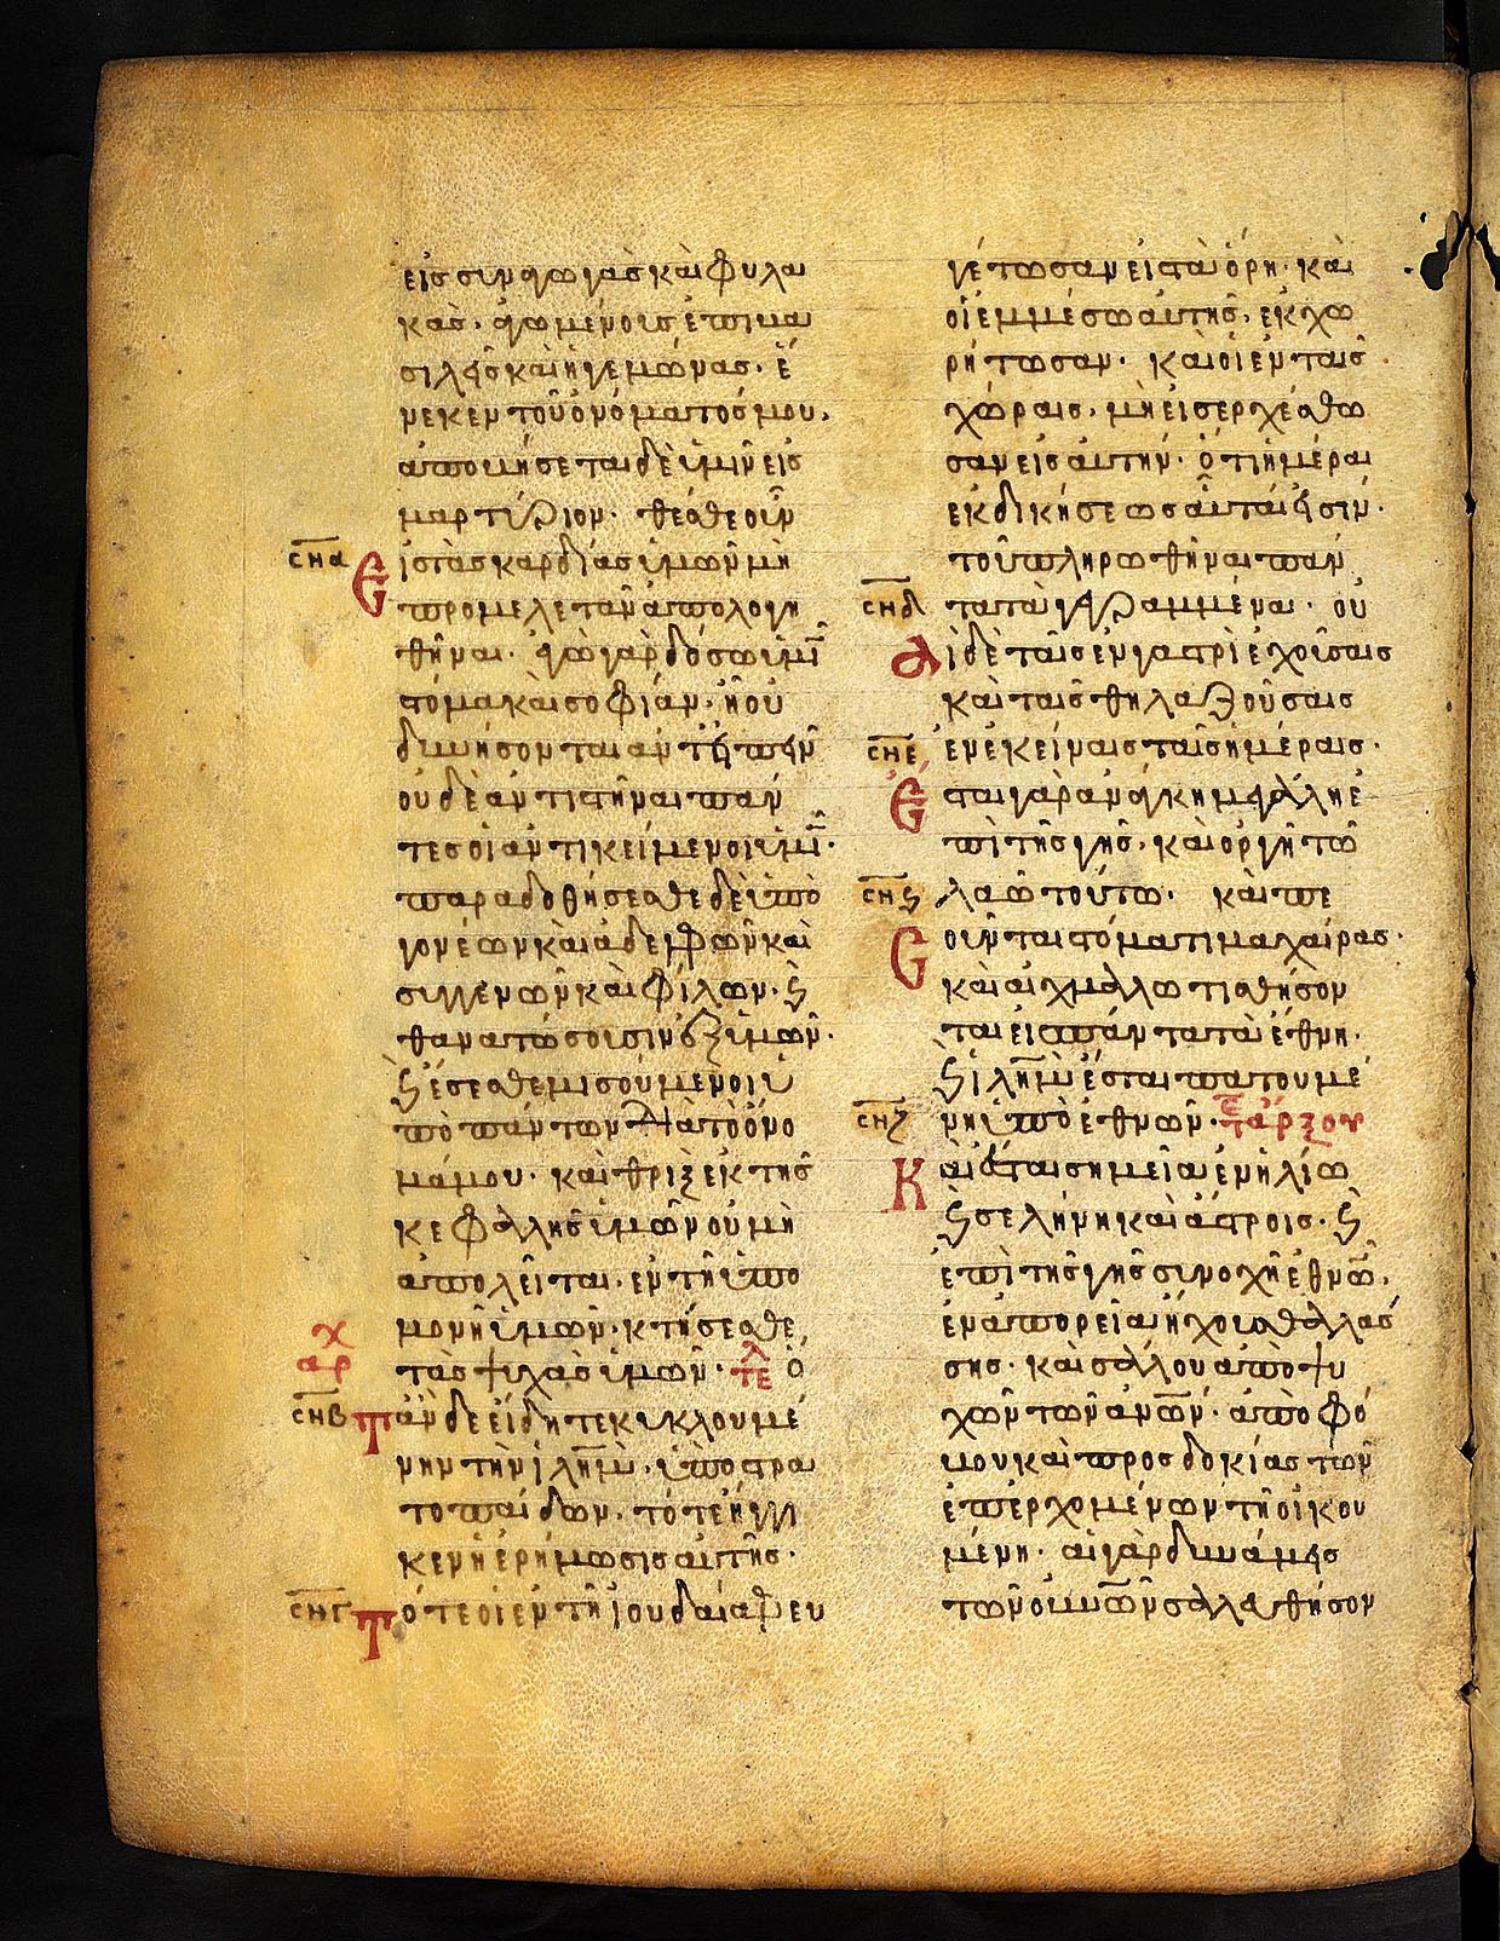 εἰς συναγωγὰς καὶ φυλα
κὰς· ἀγωμένους ἐπι βα
σιλεῖς καὶ ἡγεμώνας· ἕ
νεκεν τοῦ ὀνόματός μου·
ἀποβήσεται δὲ ὑμῖν εἰς
μαρτύριον· θέσθε οὖν
σηα
Εἰς τὰς καρδίας ὑμῶν μὴ
προμελετᾶν ἀπολογη
θῆναι· ἐγὼ γὰρ δόσω ὑμῖ
στόμα καὶ σοφίαν· ᾗ οὐ
δυνήσονται ἀντειπεῖν
οὐδὲ ἀντιστῆναι πάν
τες οἱ ἀντικείμενοι ὑμῖ·
παραδοθήσεσθε δὲ ὑπὸ
γονέων καὶ ἀδελφῶν καὶ
συγγενῶν καὶ φίλων· ϗ
θανατώσουσιν ἐξ ὑμῶν·
ϗ ἔσεσθε μισούμενοι ὑ
πὸ πάντων διὰ τὸ ὄνο
μά μου· καὶ θρὶξ ἐκ τῆς
κεφαλῆς ὑμῶν οὐ μὴ
ἀπολεῖται· ἐν τῇ ὑπο
μονῇ ὑμῶν· κτήσεσθε
αρχ
τὰς ψυχὰς ὑμῶν· τελ ὅ
σηβ
Τἀν δε εἴδητε κυκλουμέ
νην τὴν ἰλημ· ὑπὸ στρα
τοπαίδων· τότε ἤγγι
κεν ἡ ἐρήμωσις αὐτῆς·
σηγ
Τότε οἱ ἐν τῇ ἰουδαία φευ
γέτωσαν εἰς τὰ ὄρη· καὶ
οἱ ἐμμέσω αὐτῆς· ἐκχω
ρήτωσαν· καὶ οἱ ἐν ταῖς
χώραις· μὴ εἰσερχέσθω
σαν εἰς αὐτήν· ὅτι ἡμέραι
ἐκδικήσεως αὗται εἰσίν·
τοῦ πληρωθῆναι πάν
σηδ
τα τὰ γεγραμμένα· οὐ
Αὶ δὲ ταῖς ἐν γαστρὶ ἐχούσαις
καὶ ταῖς θηλαζούσαις
σηε
ἐν ἐκείναις ταῖς ἡμέραις·
Ἔσται γὰρ ἀνάγκη μεγάλη ἐ
πὶ τῆς γῆς· καὶ ὀργὴ τῶ
σης
λαῶ τούτω· καὶ πε
Cοῦνται στόματι μαχαίρας·
καὶ αἰχμαλωτισθήσον
ται εἰς πάντα τὰ ἔθνη·
ϗ ἰλὴμ ἔσται πατουμέ
σηζ
νη ὑπὸ ἐθνῶν· τε ἄρξου
Καὶ ἔσται σημεῖα ἐν ἡλίω
ϗ σελήνη καὶ ἄστροις· ϗ
ἐπὶ τῆς γῆς συνοχὴ ἐθνῶ·
ἐν ἀπορεία ἤχους θαλάσ
σης· καὶ σάλου ἀποψυ
χῶν τῶν ἀνῶν· ἀπὸ φό
βου καὶ προσδοκίας τῶν
ἐπερχομένων τῇ οἰκου
μένη· αἱ γὰρ δυνάμεις
τῶν οὐνῶν σαλευθήσον